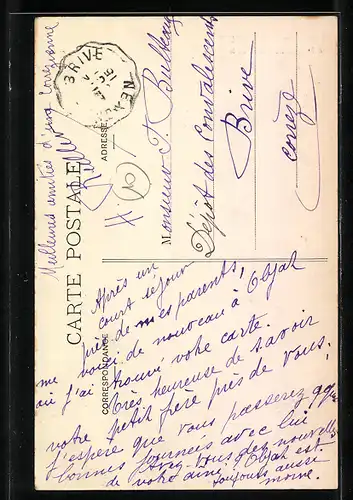 CARTE POSTALE
CORRESPONDANCE
ADRESSE
BRIVE
Meilleures amitiés d'une Corrézienne
Monsieur P.
Dépôt des Convalescents
Brive
Corrèze
10
Après un
court séjour
près de mes parents,
me voici de nouveau à Objat
où j'ai trouvé votre carte.
Très heureuse de savoir
votre petit frère près de vous,
j'espère que vous passerez qq
bonnes journées avec lui
Avez-vous des nouvelles
de votre ami? Objat est
toujours aussi
morne.